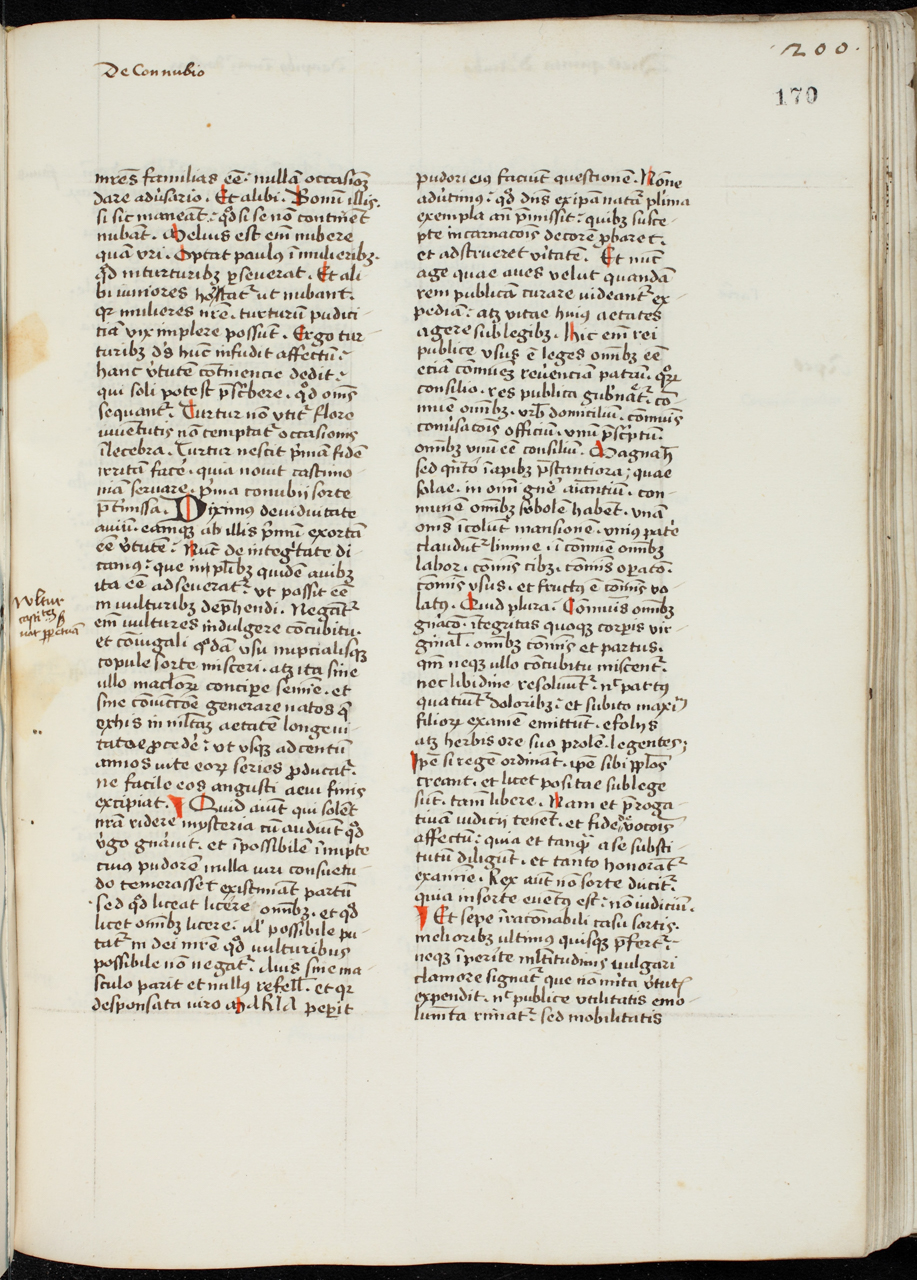 De Connubio
200.
170
mr̄es familias eē: nullā occasioē
dare adu̓sario. Et alibi. Bonū illis.
si sic maneāt: qd̓ si se nō contine̅t
nubāt. Melius est em̄ nubere
quā vri. Optat paulus ī mulieribꝫ.
qd̓ in turturibꝫ ꝑseuerat. Et ali
bi iuniores hortat᷑ ut nubant.
qr mulieres nr̄e. turturū pudici-
tiā vix implere possūt. Ergo tur-
turibꝫ ds̄ hūc infudit affectū:
hanc v̓tutē cōtinencie dedit:
qui soli potest p̄scͥbere. qd̓ om̄s
sequant᷑. Turtur nō vtit᷑ flore
iuuētutis nō temptat᷑ occasionis
īlecebra. Turtur nescit pͥmā fidē
irritā face̓. quia nouit castimo-
niā seruare. pͥma conubij sorte
ꝓmissa. Diximus de viduitate
auiū. eamqꝫ ab illis pͥmū exortā
eē v̓tutē: Nūc de integͥtate di-
camꝰ: que in plībꝫ quidē auibꝫ
ita eē adseuerat᷑. ut possit eē
in vulturibꝫ dep̄hendi. Negant᷑
em̄ vultures indulgere cōcubitu.
et cōiugali qͦdā vsu nupcialisqꝫ
copule sorte misceri. atqꝫ ita sine
ullo masclorꝝ concipe̓ semīe. et
sine cōiūctōe generare natos qꝫ
ex his in multā aetatē longeui-
tate ꝓcede̓: ut vsqꝫ ad centū
annos vite eorꝝ series ꝓducat᷑.
ne facile eos angusti aeui finis
excipiat. Quid aiūt qui solēt
nr̄a ridere mysteria cū audiūt qd̓
v̓go gn̄auit. et īpossibilē īnupte
cuius pudorē nulla viri consuetu-
do temerasset existimāt partū
sed qd̓ liceat licere om̄ibꝫ. et qd̓
licet om̄ibꝫ licere: ul̓ possibile pu-
tat᷑ in dei mr̄e qd̓ vulturibus
possibile nō negat᷑. Auis sine ma-
sculo parit et nullus refell̄. et qr
desponsata viro maria peperit
Vultur
castitatē ẜ
uat ꝑpetuā
pudori eiꝰ faciūt questionē. Nōne
adu̓timꝰ: qd̓ dn̄s ex ipā natā plīma
exempla an̄ pͥmissit: quibꝫ susce-
pte incarnacōis decorē ꝓbaret.
et adstrueret v̓itatē. Et nūc
age quae aues velut quandā
rem publicā curare videant᷑ ex-
pediā: atqꝫ vitae huius aetates
agere sub legibꝫ. Hic em̄ rei
publice vsus ē leges om̄ibꝫ eē
etiā cōmues reu̓enciā patrū. quorꝝ
consilio. res publica gub̓nāt᷑. cō-
mūe om̄ibꝫ. urb̓ domiciliū. cōmuīs
conu̓sacōis officiū. vnū p̄scͥptū.
om̄ibꝫ vnū eē consiliū. Magna h̓
sed qͣnto ī apibꝫ p̄stantiora; quae
solae. in om̄i gn̄e aīantiū. con-
munē om̄ibꝫ sobolē habēt. vnā
om̄s īcolūt mansionē. vniꝰ pat̓e
claudūt᷑ limine. ī cōmūe om̄ibꝫ
labor. cōmuīs cibꝫ. cōmuīs oꝑatō.
cōmuīs vsus. et fructꝰ ē cōmuīs vo-
latꝰ. Quid plura. Cōmuīs om̄ibꝫ
gn̄aco. ītegritas quoqꝫ corpis vir-
ginal̓. om̄ibꝫ cōmuīs et partus.
qm̄ neqꝫ ullo cōcubitu miscent᷑.
nec libidine resoluūt᷑. nͨ partꝰ
quatiunt᷑ doloribꝫ: et subito maxīū
filiorꝝ examē emittūt. e folijs
atqꝫ herbis ore suo prolē. legentes;
Ipē si regē ordināt. ipē sibi pplōs
creant. et licet positae sub lege
sūt. tam̄ libere. Nam et p̄roga-
tiuā iudicij tenēt. et fide deuocōis
affectū: quia et tanqͣ a se substi-
tutū diligūt. et tanto honorant᷑
examīe. Rex aut̄ nō sorte ducit᷑.
quia in sorte euētus est: nō iudiciū.
Et sepe īratōnabili casu sortis.
melioribꝫ ultimus quisqꝫ p̄fert᷑.
neqꝫ īperite multitudinis vulgari
clamore signat᷑ que nō mͥta v̓tutꝭ
expendit. nͨ publice vtilitatis emo-
lumēta rimat᷑. sed mobilitatis